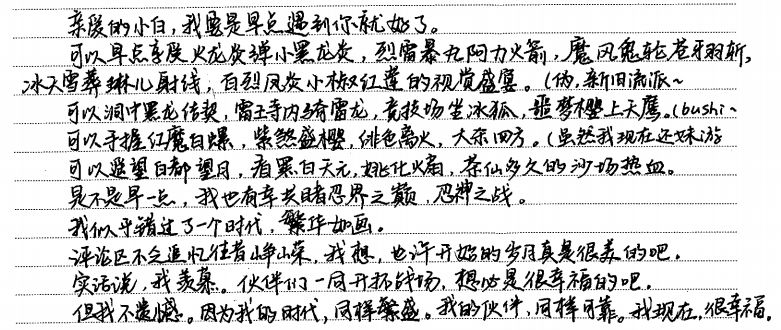 亲爱的小白，我要是早点遇到你就好了。
可以早点享受火龙炎弹小黑龙炎，烈雷暴丸阿力火箭，魔风鬼轮苍羽斩，
冰天雪葬琳儿射线，百烈风炎小椒红莲的视觉盛宴。（伪，新旧流派~
可以洞中黑龙传契，雷王寺内骑雷龙，竞技场坐冰狐，噩梦樱上天鹰。（bushi~
可以手握红魔自爆，紫煞盛樱，绯色离火，大杀四方。（虽然我现在还妹游
可以遥望白都望月，宿累白天元，姚仕火扇，茶仙多久的沙场热血。
是不是早一点，我也有幸共睹忍界之巅，忍神之战。
我似乎错过了一个时代，繁华如画。
评论区不乏追忆往昔峥嵘，我想，也许开始的岁月真是很美的吧。
实话说，我羡慕。伙伴们一同开拓战场，想必是很幸福的吧。
但我不遗憾。因为我的时代，同样繁盛。我的伙伴，同样可靠。我现在，很幸福。